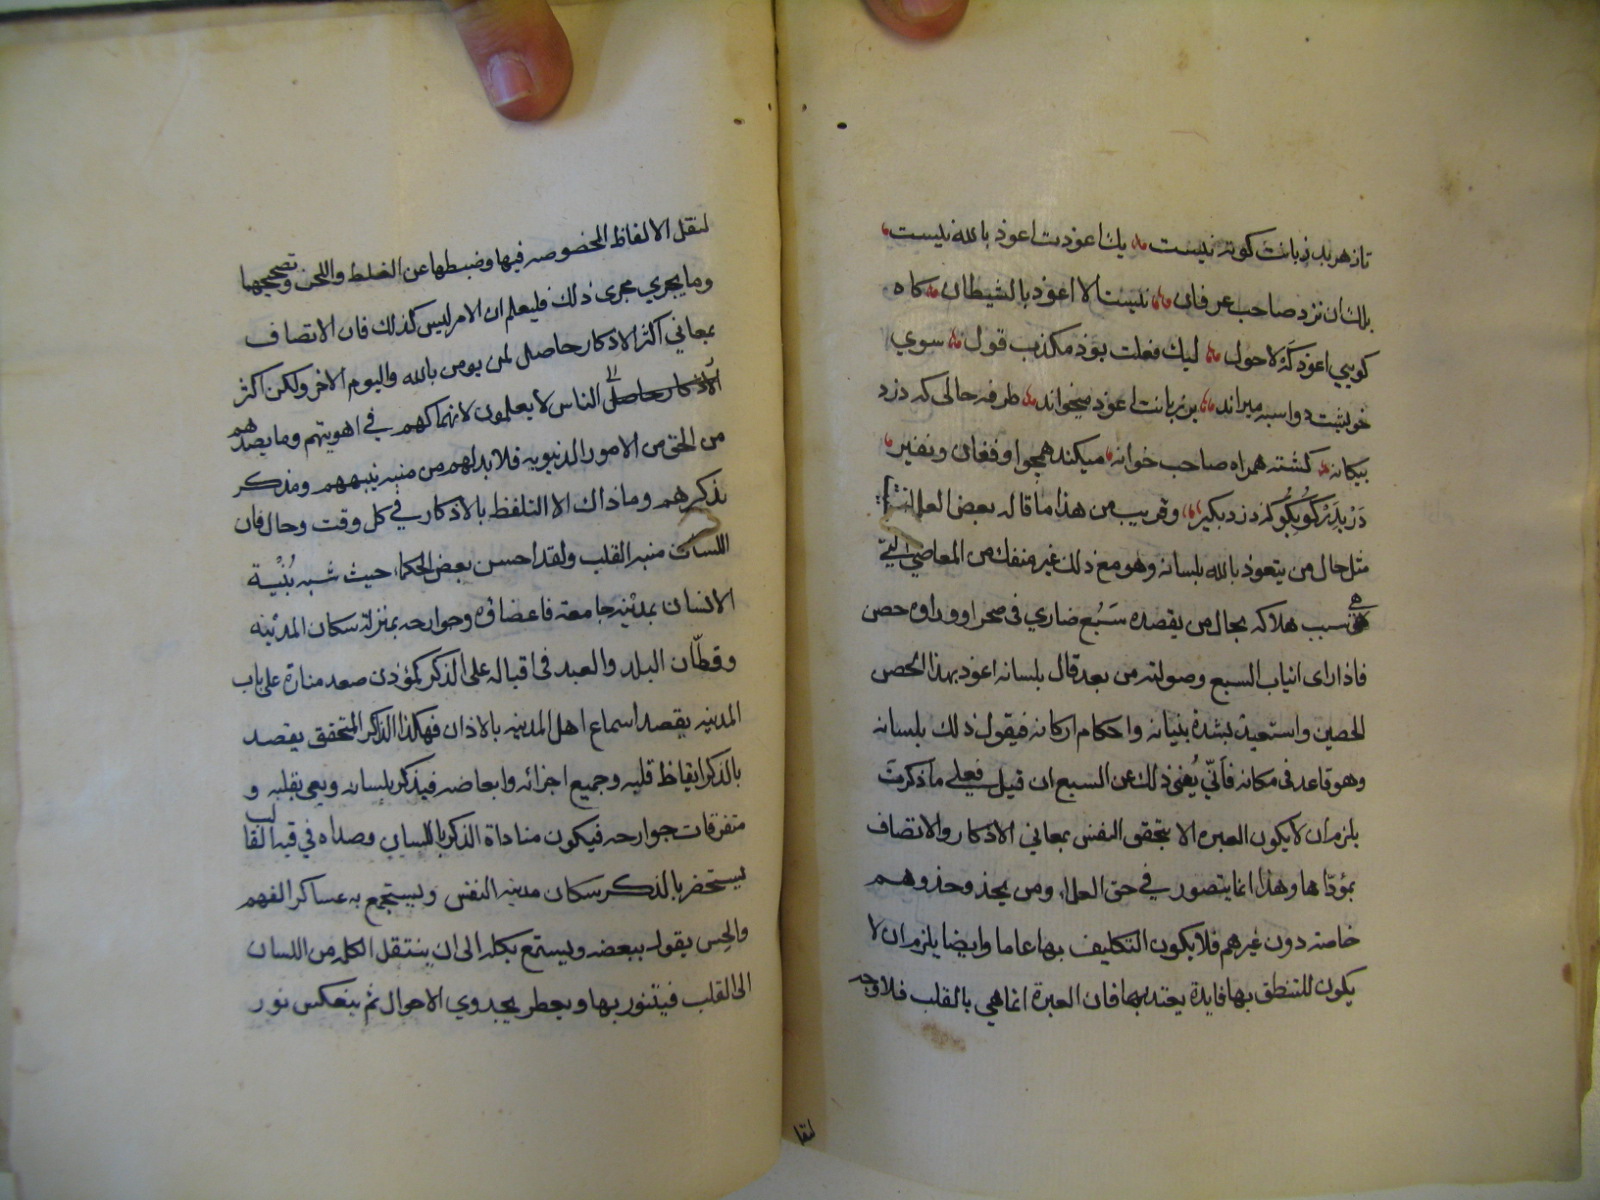 تاز هر بد زبانت كوته نيست يك اعوذت اعوذ بالله نيست
بلك آن نزد صاحب عرفان نيست الا اعوذ بالشيطان كاه
كويي اعوذ كه لاحول ليك فعلت بود مكذب قول سوي
خويشت دواسبه ميراند بر زبانت اعوذ ميخواند طرفه حالي كه دزد
بيكانه كشته همراه صاحب خوانه ميكند همچو او فغان و نفير
در بدر كو بكو كه دزد بكير وقريب من هذا ما قاله بعض العلماء
مثل حال من يتعوذ بالله بلسانه وهو مع ذلك غير منفك من المعاصي التي
هي سبب هلاكه بحال من يقصده سَبُع ضاري في صحرا ووراوه حصن
فاذا راى انياب السبع وصولته من بعد قال بلسانه اعوذ بهذا الحصن
الحصين واستعيذ بشدة بنيانه واحكام اركانه فيقول ذلك بلسانه
وهو قاعد في مكانه فأنّي يُغني ذلك عن السبع ان قيل فعلي ما ذكرتَ
يلزم ان لا يكون العبره الا بتحقق النفس بمعاني الاذكار والاتصاف
بمؤدّاها وهذا انما يتصور في حق العلماء ومن يحذو حذوهم
خاصة دون غيرهم فلا يكون التكليف بها عاما وايضا يلزم ان لا
يكون للتنطق بها فايدة يعتد بها فان العبرة انما هي بالقلب فلا وجه
لنقل
لنقل الالفاظ المخصوصه فيها وضبطها عن الغلط واللحن وتصحيحها
وما يجري مجرى ذلك فليعلم ان الامر ليس كذلك فان الاتصاف
بمعاني اكثر الاذكار حاصل لمن يومن بالله واليوم الاخر ولكن اكثر
الاذكار حاصل الناس لا يعلمون لانهماكهم في اهويتهم وما يصدهم
من الحق من الامور الدنيويه فلا بد لهم من منبه ينبههم ومذكر
يذكرهم وما ذاك الا التلفظ بالاذكار في كل وقت وحال فان
اللسان منبه القلب ولقد احسن بعض الحكماء حيث شبه بُنْيَة
الانسان بمدينه جامعة فاعضاؤه وجوارحه بمنزلة سكان المدينه
وقطّان البلد والعبد في اقباله على الذكر كمؤذن صعد منارة على باب
المدينه يقصد اسماع اهل المدينه بالاذان فهكذا الذاكر المتحقق يقصد
بالذكر ايقاظ قلبه وجميع اجزائه وابعاضه فيذكر بلسانه ويعي بقلبه و
متفرقات جوارحه فيكون مناداة الذكر باللسان وصداه في قبة القالب
يستحضر بالذكر سكان مدينه النفس ويستجمع به عساكر الفهم
والحِس يقول ببعضه ويستمع بكله الى ان ينتقل الكلم من اللسان
الى القلب فيتنور بها ويعطر بجدوي الاحوال ثم ينعكس نور